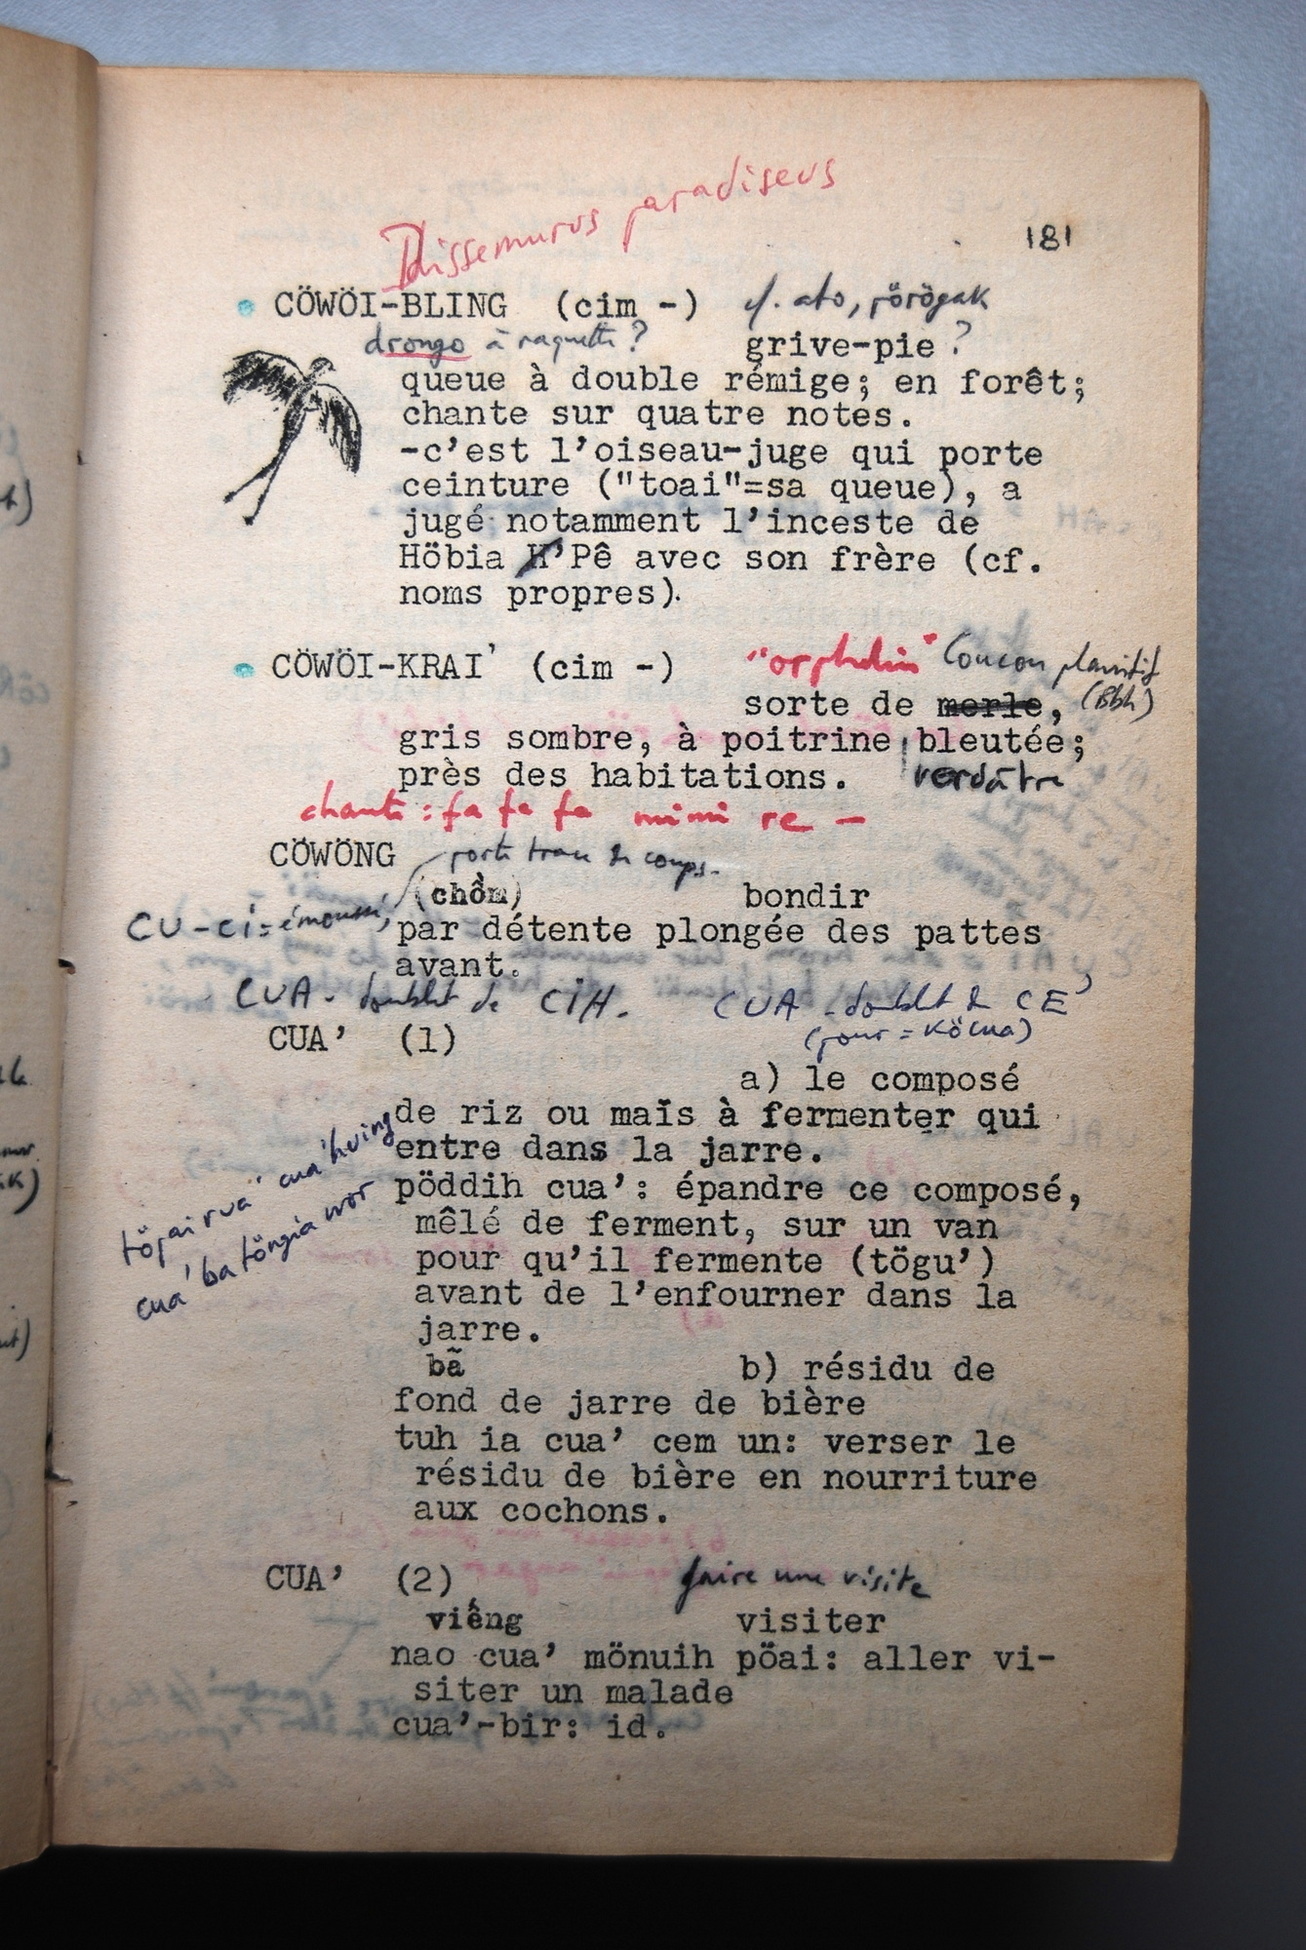 Dissemurus paradiseus
181
CÖWÖI-BLING (cim -) cf. ato, pörögak
drongo à raquette ? grive-pie ?
queue à double rémige; en forêt;
chante sur quatre notes.
-c'est l'oiseau-juge qui porte
ceinture ("toai"=sa queue), a
jugé notamment l'inceste de
Höbia H'Pê avec son frère (cf.
noms propres).
CÖWÖI-KRAI' (cim -) "orphelin" Coucou plaintif
sorte de merle, (Bbh)
gris sombre, à poitrine bleutée;
près des habitations. verdâtre
chante : fa fa fa mi mi re -
CÖWÖNG porte trace de coups.
(chồm) bondir
CU-ci = émoussé,
par détente plongée des pattes
avant.
CUA - doublet de CIH. CUA - doublet de CE'
(pour = köcua)
CUA' (1)
a) le composé
de riz ou maïs à fermenter qui
entre dans la jarre.
pöddih cua': épandre ce composé,
mêlé de ferment, sur un van
pour qu'il fermente (tögu')
avant de l'enfourner dans la
jarre.
töpai rua' cua' hving
cua' ba töngia wor
bã b) résidu de
fond de jarre de bière
tuh ia cua' cem un: verser le
résidu de bière en nourriture
aux cochons.
CUA' (2) faire une visite
viêng visiter
nao cua' mönuih pöai: aller vi-
siter un malade
cua'-bir: id.